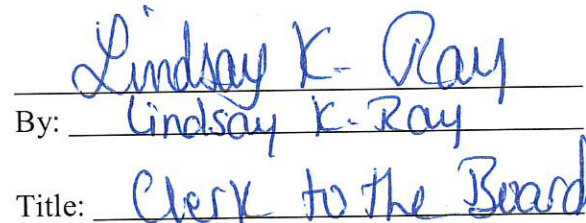 Lindsay K. Ray
By: Lindsay K. Ray
Title: Clerk to the Board